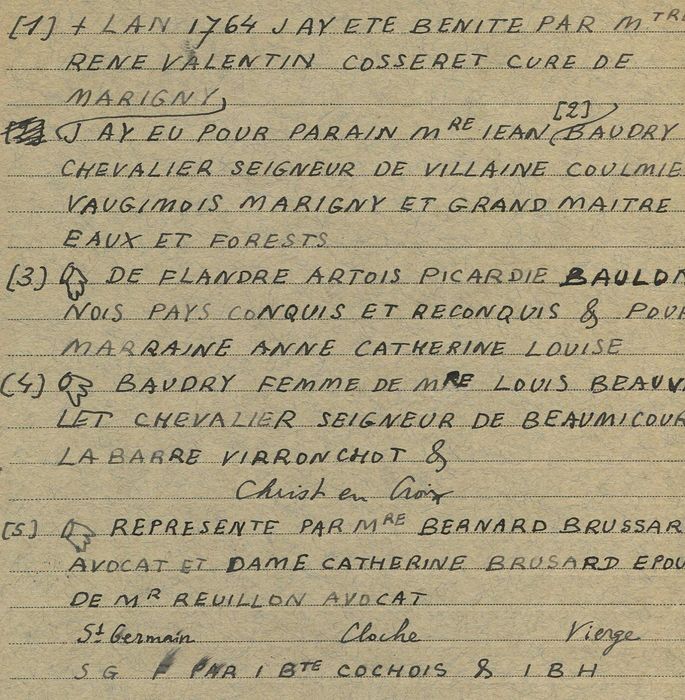 [1] + LAN 1764 J AY ETE BENITE PAR MTRE
RENE VALENTIN COSSERET CURE DE
MARIGNY
[2]
J AY EU POUR PARAIN MRE IEAN BAUDRY
CHEVALIER SEIGNEUR DE VILLAINE COULMIE
VAUGIMOIS MARIGNY ET GRAND MAITRE
EAUX ET FORESTS
[3] DE FLANDRE ARTOIS PICARDIE BAULON
NOIS PAYS CONQUIS ET RECONQUIS & POUR
MARRAINE ANNE CATHERINE LOUISE
[4] BAUDRY FEMME DE MRE LOUIS BEAUV
LET CHEVALIER SEIGNEUR DE BEAUMICOUR
LA BARRE VIRRONCHOT &
Christ en Croix
[5] REPRESENTE PAR MRE BERNARD BRUSSAR
AVOCAT ET DAME CATHERINE BRUSARD EPOU
DE MR REUILLON AVOCAT
St Germain Cloche Vierge
S G F PAR I BTE COCHOIS & I B H